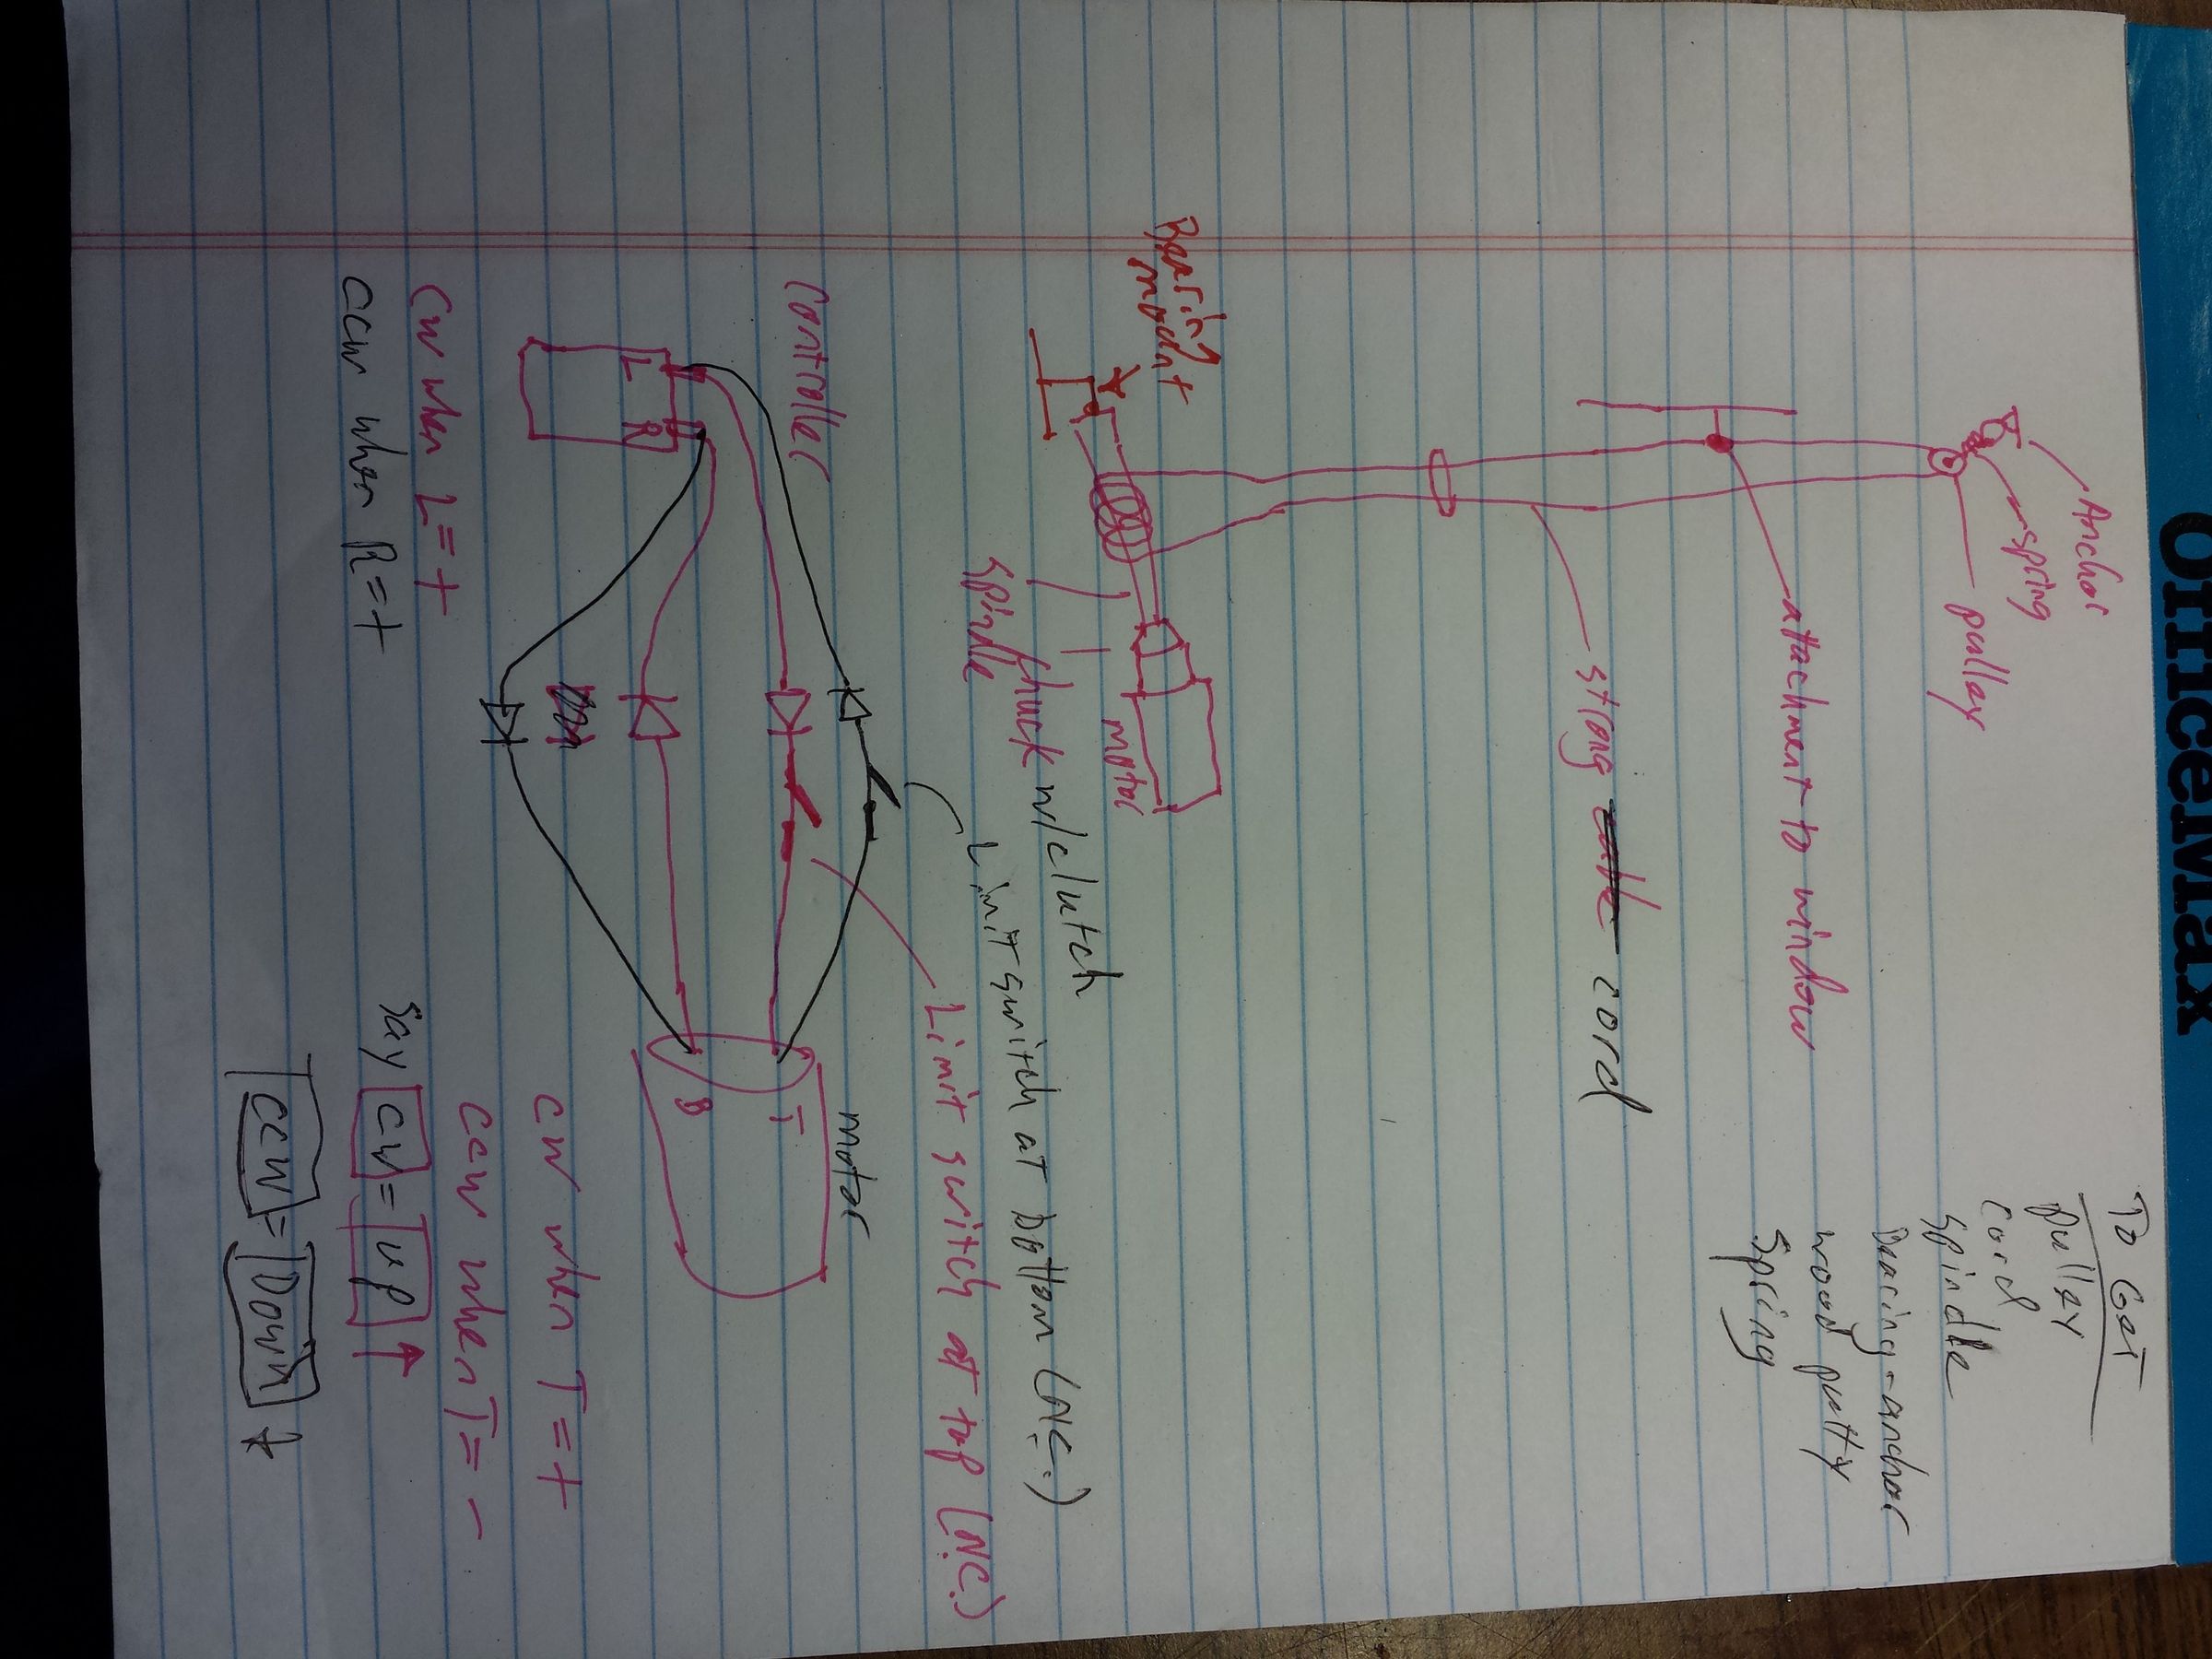 OfficeMax
To Get
pulley
cord
spindle
Bearing-anchor
wood putty
spring
Anchor
spring
pulley
attachment to window
strong cable cord
Bearing
mount
motor
chuck w/clutch
spindle
Limit switch at bottom (N.C.)
Limit switch at top (N.C.)
controller
motor
L
R
T
B
cw when L=+
ccw when R=+
cw when T=+
ccw when T=-
say cw = up ↑
ccw = Down ↓